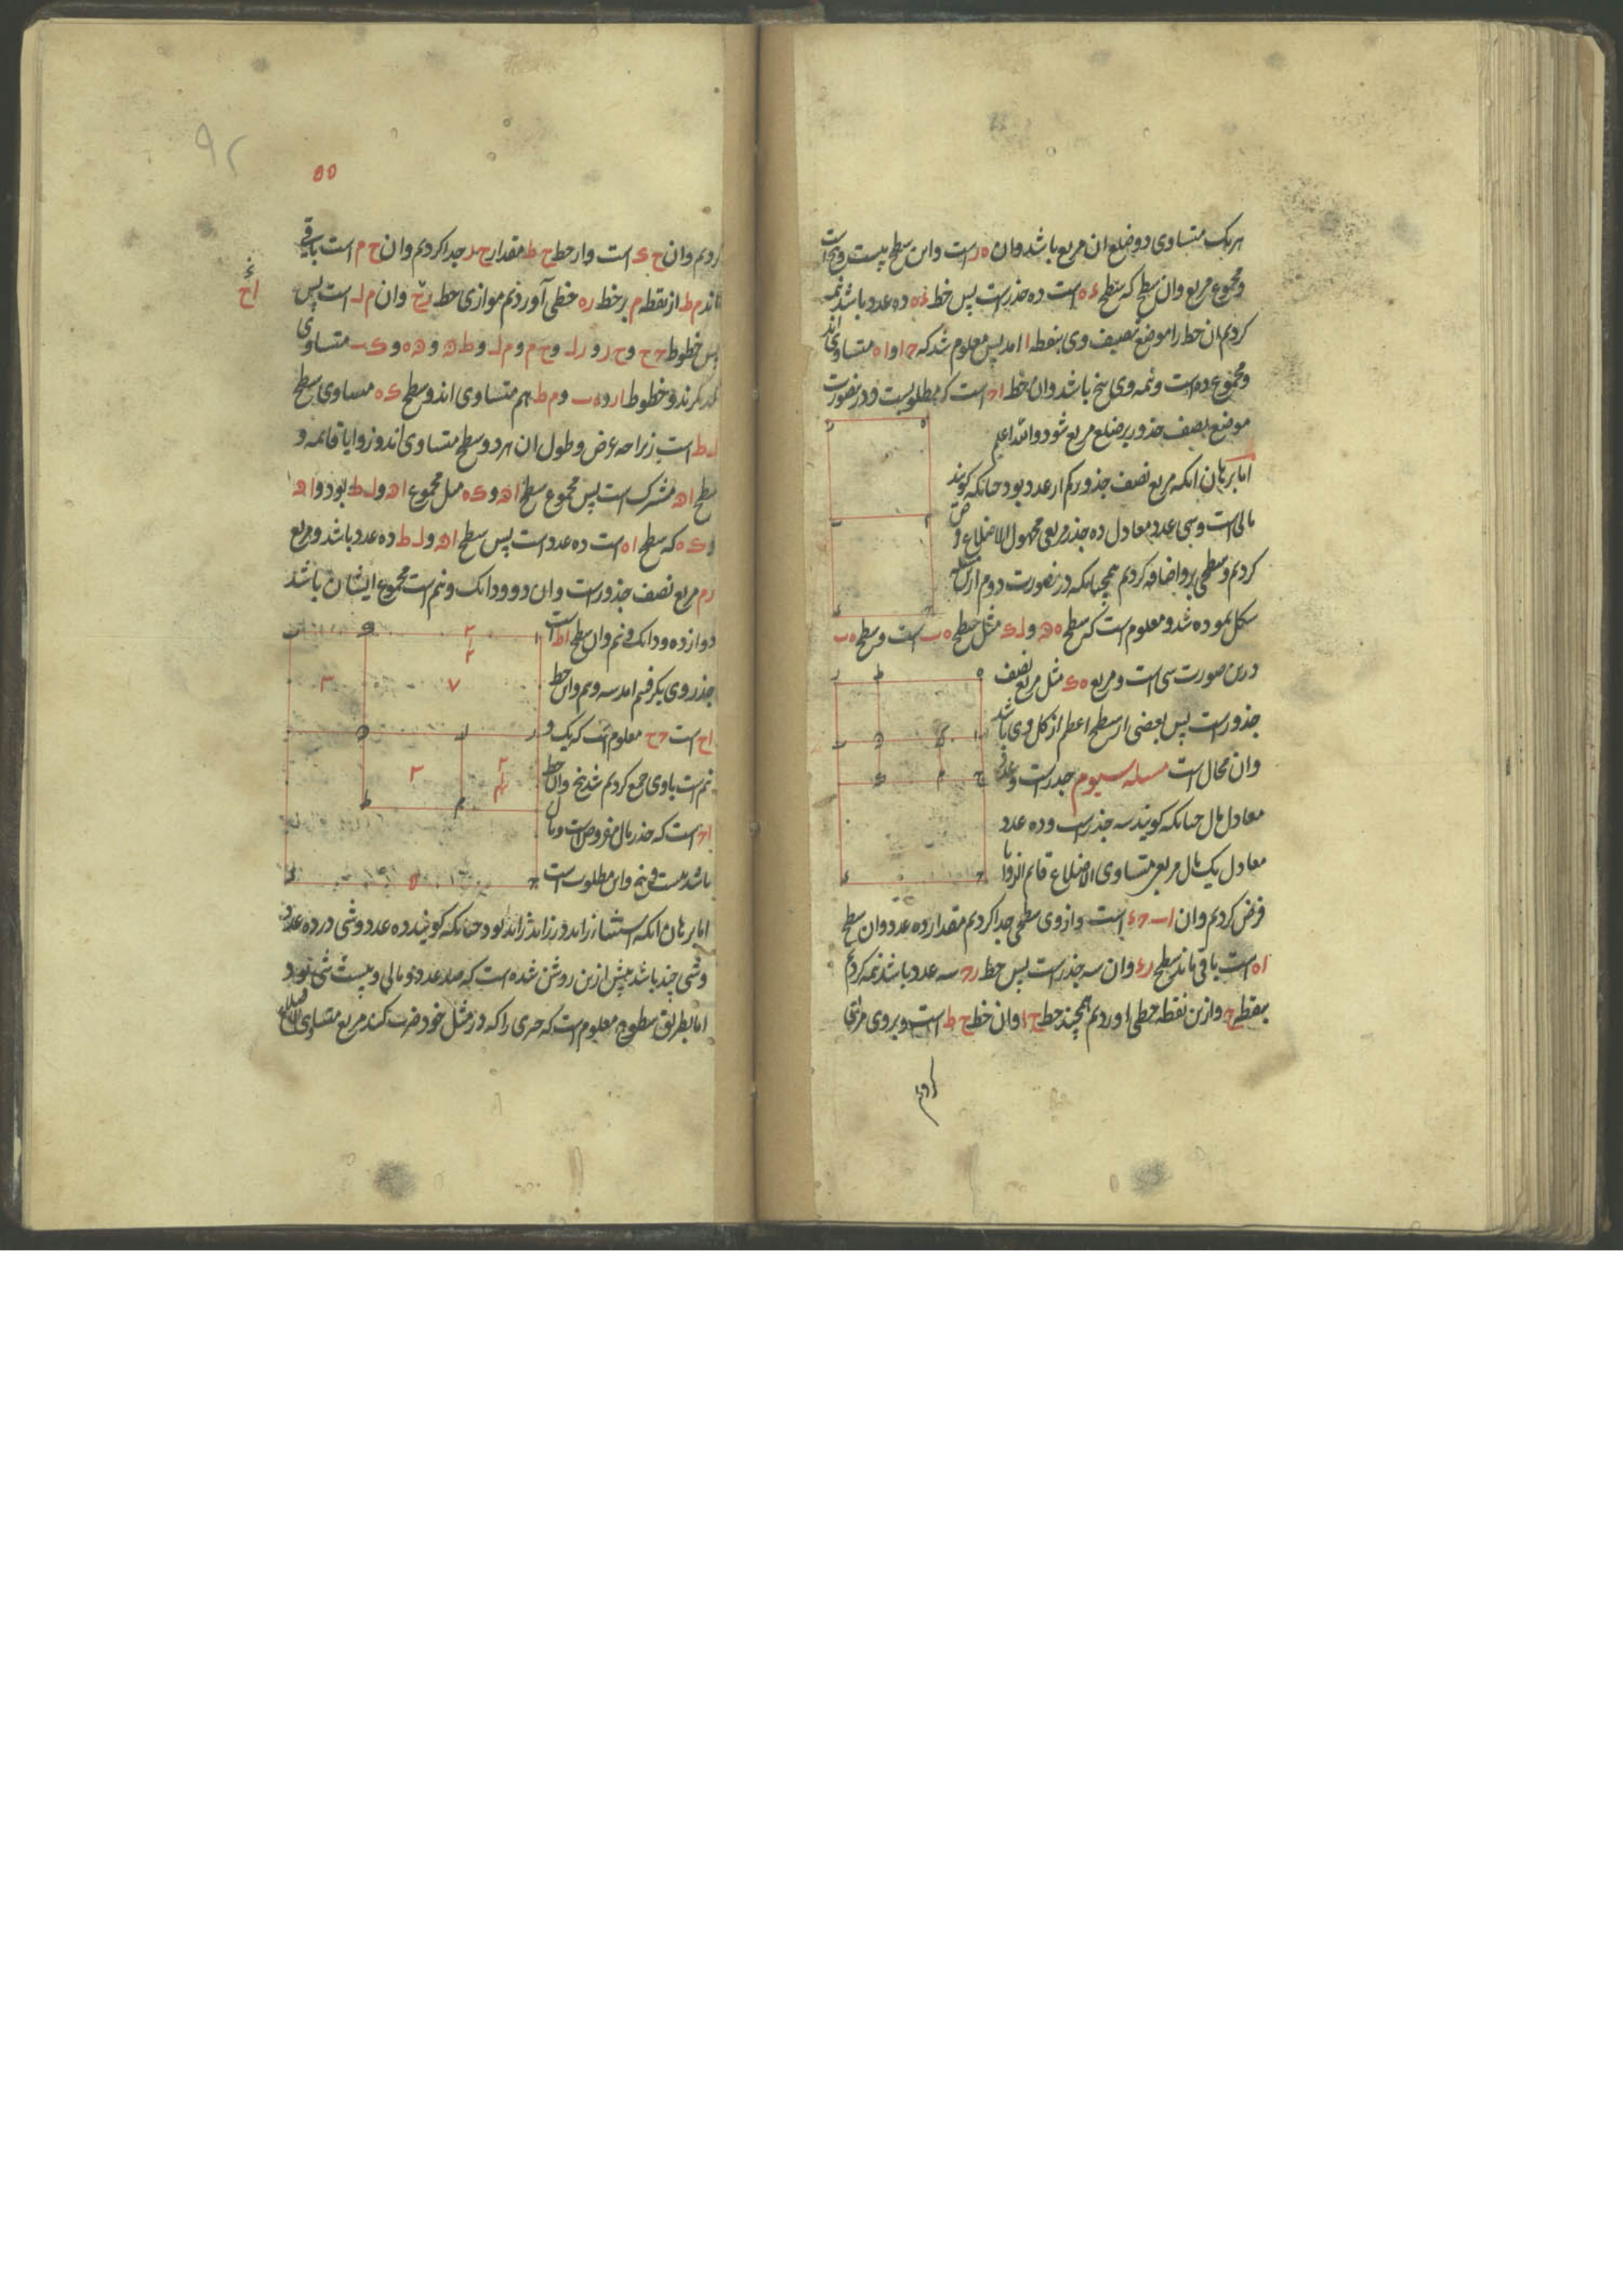 هریک متساوی دو ضلع ان مربع باشد وان ه ر است واین سطح بیست و پنج است
ومجموع مربع وان سطح که سطح ء ه است ده جذر است پس خط ء ه ده عدد باشد نیمه
کردیم ان خط را موضع تنصیف وی بنقطه ا امد پس معلوم شد که ح ا و ا ه متساوی اند
ومجموع ده است ونیمه وی پنج باشد وان خط ا ح است که مطلوبست و درین صورت
موضع نصف جذور بر ضلع مربع شود والله اعلم
اما برهان انکه مربع نصف جذور کم از عدد بود چنانکه کویند
مالی است وسی عدد معادل ده جذر مربعی مجهول الاضلاع فرض
کردیم وسطحی برو اضافه کردیم همچنانکه در صورت دوم ازین
شکل نموده شد ومعلوم است که سطح ه ه و ل ک مثل سطح ه ب است وسطح ه ب
درین صورت سی است ومربع ه ک مثل مربع نصف
جذور است پس بعضی از سطح اعظم از کل وی باشد
وان محال است مسله سیوم جذر است وعدد
معادل مال چنانکه کویند سه جذر است وده عدد
معادل یک مال مربعی متساوی الاضلاع قایم الزوایا
فرض کردیم وان ا ب ح ء است وازوی سطحی جدا کردیم مقدار ده عدد وان سطح
ا ه است باقی ماند سطح ر ء وان سه جذر است پس خط ر ح سه عدد باشد نیمه کردیم
بنقطه ح وازین نقطه خطی اوردیم همچند خط ح ا وان خط ح ط است وبروی مربعی
کردیم
۵۵
کردیم وان ح ک است واز خط ح ط مقدار ح ر جدا کردیم وان ح م است باقی
ماند م ط از نقطه م بر خط ره خطی آوردیم موازی خط ر ح وان م ل است پس
پس خطوط ح ح و ح ر و ر ل و ح م و م ل و ط ه و ه ه و ک ب متساوی
یکدیکرند وخطوط ا ر و ه ب و م ط هم متساوی اند وسطح ک ه مساوی سطح
ل ط است زیرا که عرض وطول ان هر دو سطح متساوی اند وزوایا قایمه و
سطح ا ه مشترک است پس مجموع سطح ا ه و ک ه مثل مجموع ا ه و ل ط بود و ا ه
و ک ه که سطح ا ه است ده عدد است پس سطح ا ه و ل ط ده عدد باشد ومربع
ر م مربع نصف جذور است وان دو ودانک ونیم است مجموع ایشان باشد
دوازده ودانک ونیم وان سطح ا ط است
جذر وی بکرفتیم امد سه ونیم واین خط
ا ح است ح ح معلوم است که یک و
نیم است باوی جمع کردیم شد پنج وان خط
ا ح است که جذر مال مفروض است ومال
باشد بیست و پنج واین مطلوب است
اما برهان انکه استثنا زاید در زاید زاید بود چنانکه کویند ده عدد وشی در ده عدد
وشی چند باشد پیش ازین روشن شده است که صد عدد ومالی وبیست شی بود
اما بطریق سطوح معلوم است که چیزی را که در مثل خود ضرب کنند مربع متساوی الاضلاع